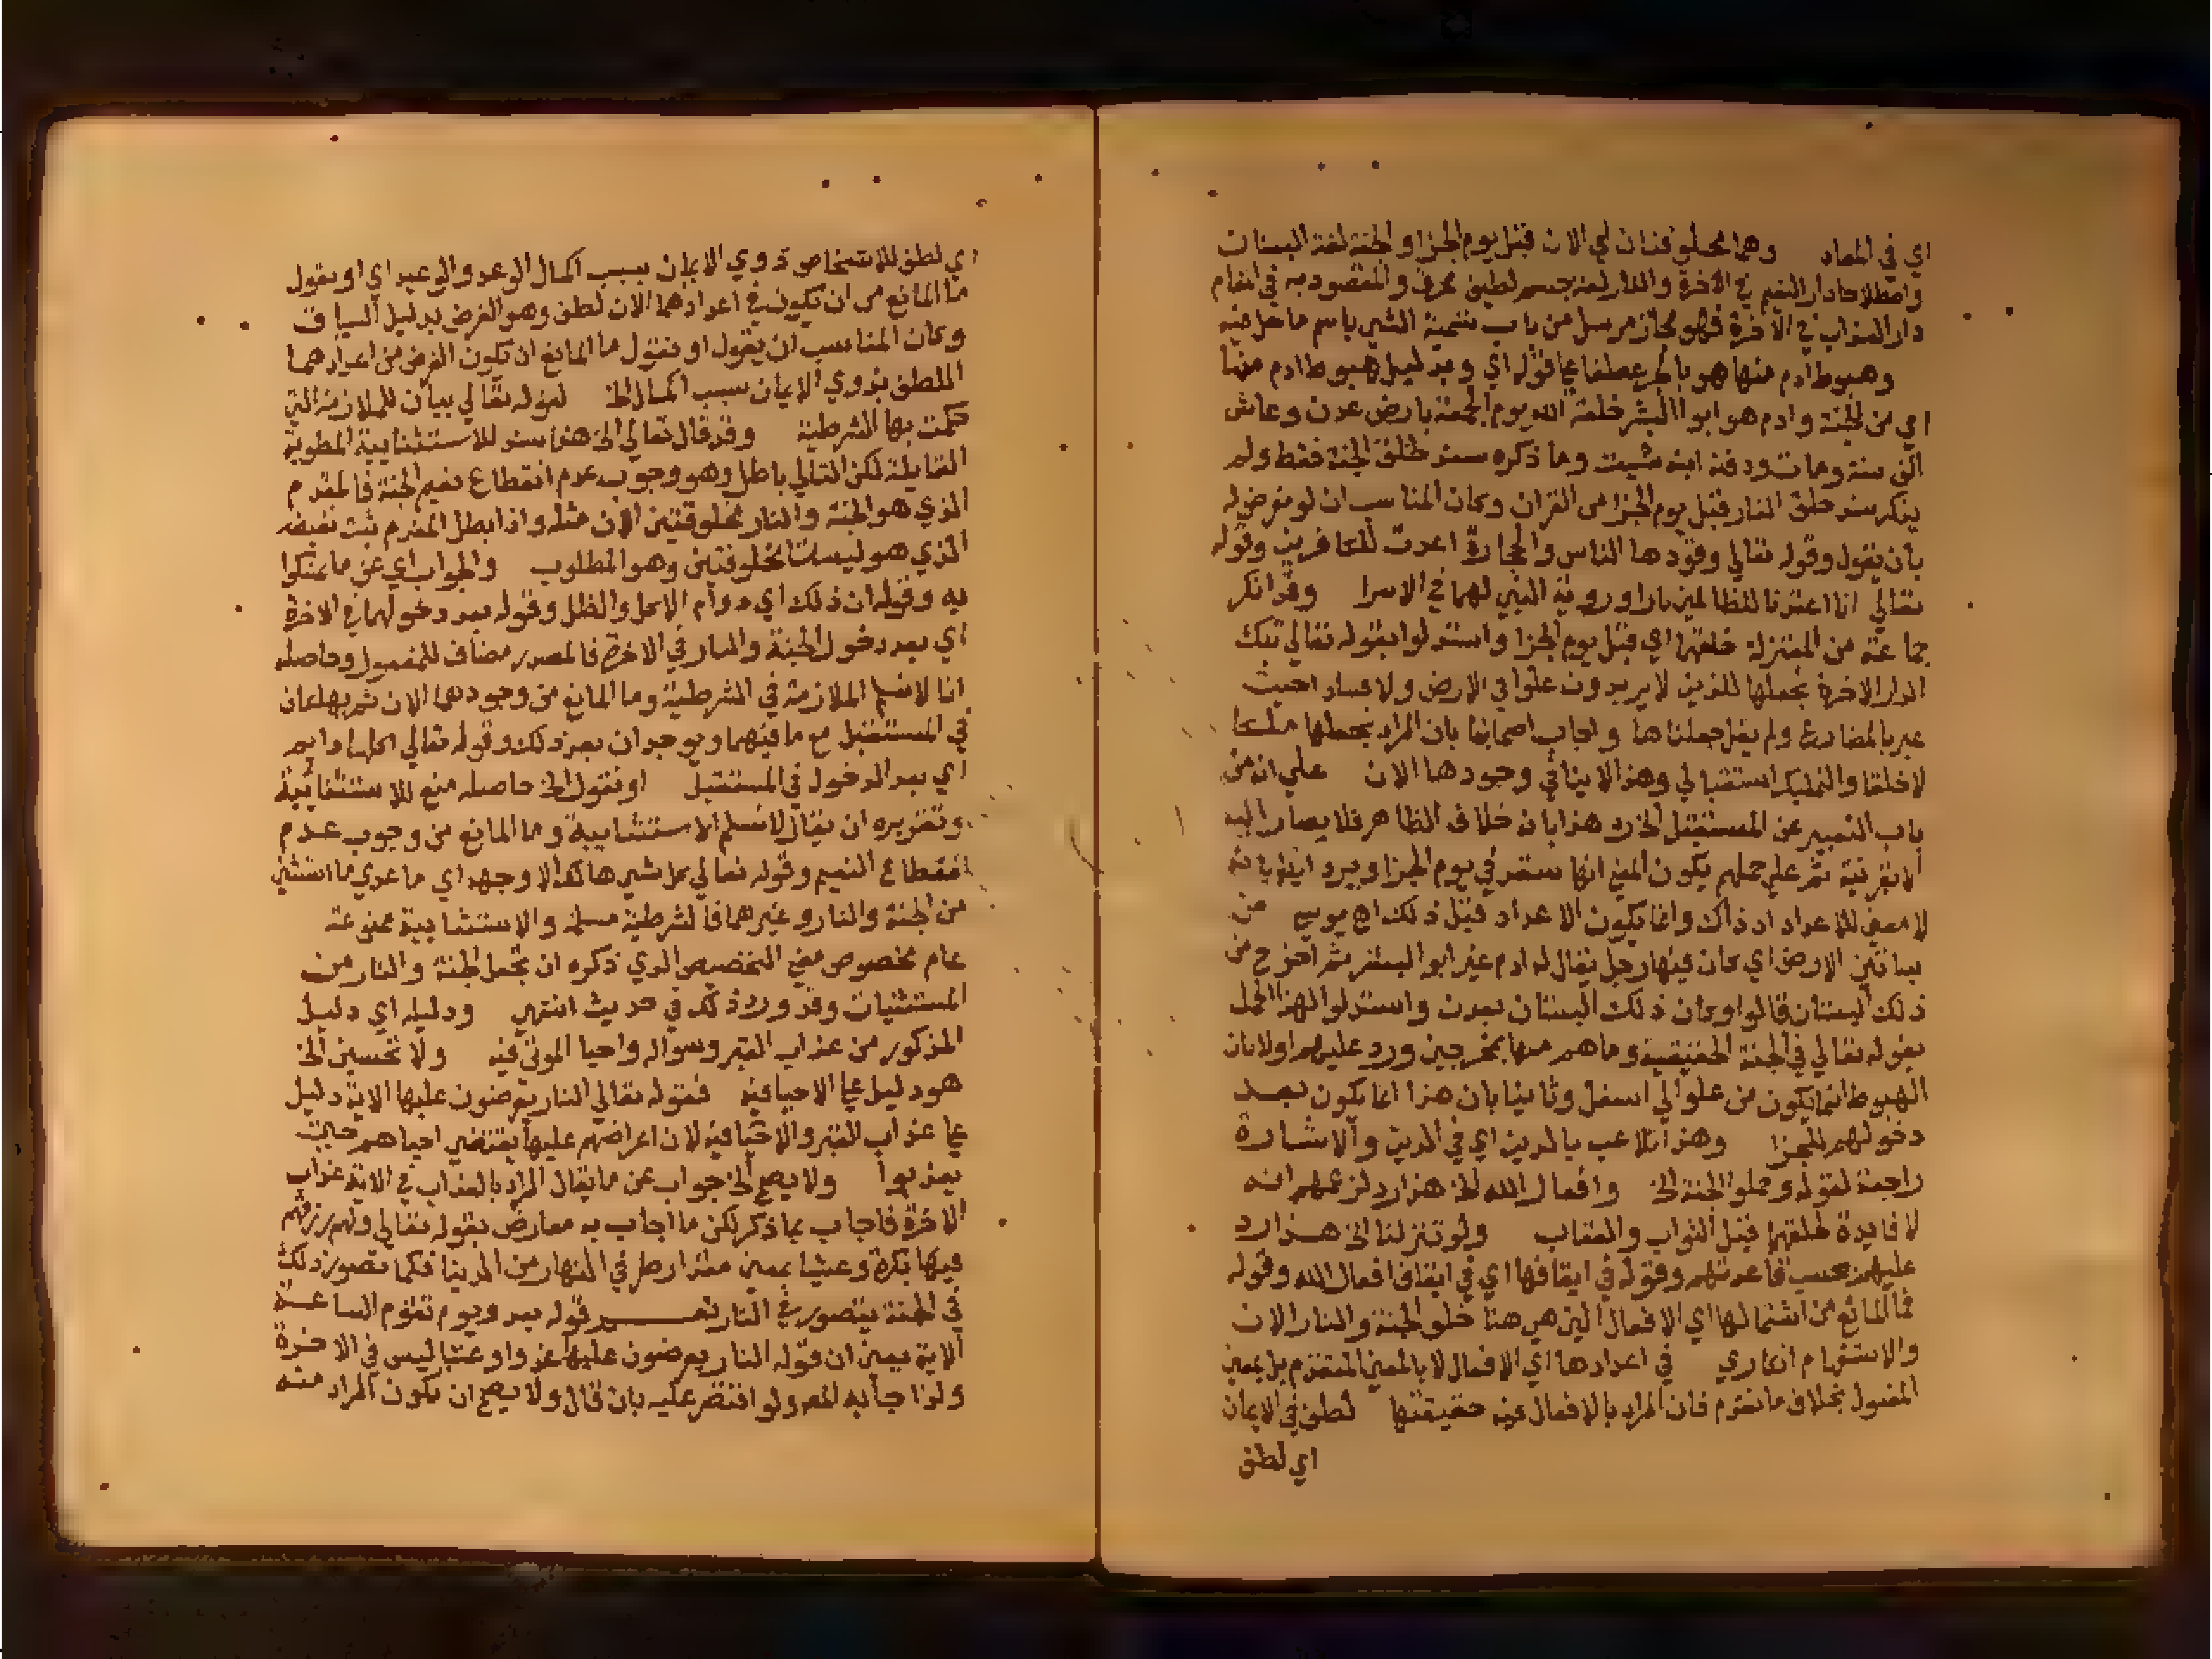 اي في المعاد وهما مخلوقتان اي الان قبل يوم الجزا والجنة لغة البستان
واصطلاحا دار النعيم في الاخرة والنار لغة جسم لطيف محرق والمقصود به في المقام
دار العذاب في الاخرة فهو مجاز مرسل من باب تسمية الشي باسم ما حل فيه
وهبوط ادم منها هو بالجر عطفا علي قوله اي وبدليل هبوط ادم منها
اي من الجنة وادم هو ابو البشر خلقه الله يوم الجمعة بارض عدن وعاش
الف سنة ومات ودفنه ابنه شيت وما ذكره سند لخلق الجنة فقط ولم
يذكر سند خلق النار قبل يوم الجزا من القران وكان المناسب ان لو تعرض له
بان يقول وقوله تعالي وقودها الناس والحجارة اعدت للكافرين وقوله
تعالي انا اعتدنا للظالمين نارا وروية النبي لهما في الاسرا وقد انكر
جماعة من المعتزلة خلقهما اي قبل يوم الجزا واستدلوا بقوله تعالي تلك
الدار الاخرة نجعلها للذين لا يريدون علوا في الارض ولا فسادا حيث
عبر بالمضارع ولم يقل جعلناها واجاب اصحابنا بان المراد نجعلها ملكا
لا خلقا والتمليك استقبالي وهذا لا ينافي وجودها الان علي انه من
باب التعبير عن المستقبل الخ رد هذا بانه خلاف الظاهر فلا يصار اليه
الا بقرينة ثم علي حملهم يكون المعني انها ستعد في يوم الجزا ويرد ايضا بانه
لا معني للاعداد اذ ذاك وانما يكون الاعداد قبل ذلك اهـ من
بساتين الارض اي كان فيها رجل يقال له ادم غير ابو البشر ثم اخرج من
ذلك البستان قالوا وكان ذلك البستان بعدن واستدلوا لهذا الحمل
بقوله تعالي في الجنة الحقيقية وما هم منها بمخرجين ورد عليهم اولا بان
الهبوط انما يكون من علو الي اسفل وثانيا بان هذا انما يكون بعد
دخولهم للجزا وهذا تلاعب بالدين اي في الدين والاشارة
راجعة لقوله وحملوا الجنة الخ وافعال الله الخ هذا رد لزعمهم انه
لا فايدة لخلقهما قبل الثواب والعقاب ولو تنزلنا الخ هذا رد
عليهم بحسب قاعدتهم وقوله في ايقافها اي في ايقاف افعال الله وقوله
فما المانع من اشتمالها اي الافعال التي هي هنا خلق الجنة والنار الان
والاستفهام انكاري في اعدادها اي الافعال لا بالمعني المتقدم بل بمعني
المفعول بخلاف ما تقدم فان المراد بالافعال فيه حقيقتها لطف في الايمان
اي لطف
اي لطف للاشخاص ذوي الايمان بسبب اكمال الوعد والوعيد اي او نقول
ما المانع من ان يكون في اعدادهما الان لطف وهو الغرض بدليل السياق
وكان المناسب ان يقول او نقول ما المانع ان يكون الغرض من اعدادهما
اللطف بذوي الايمان سبب اكمال الخ لقوله تعالي بيان للملازمة التي
حكمت بها الشرطية وقد قال تعالي الخ هذا سند للاستثنايية المطوية
القايلة لكن التالي باطل وهو وجوب عدم انقطاع نعيم الجنة فالمقدم
الذي هو الجنة والنار مخلوقتين الان مثله واذا بطل المقدم ثبت نقيضه
الذي هو ليستا مخلوقتين وهو المطلوب والجواب اي عن ما تمسكوا
به وقوله ان ذلك اي دوام الاكل والظل وقوله بعد دخولهما في الاخرة
اي بعد دخول الجنة والنار في الاخرة فالمصدر مضاف للمفعول وحاصله
انا لا نسلم الملازمة في الشرطية وما المانع من وجودهما الان ثم يهلكان
في المستقبل مع ما فيهما ويوجدان بعد ذلك وقوله تعالي اكلها دايم
اي بعد الدخول في المستقبل او نقول الخ حاصله منع للاستثنايية
وتقريره ان يقال لا نسلم الاستثنايية وما المانع من وجوب عدم
انقطاع النعيم وقوله تعالي كل شي هالك الا وجهه اي ما عدي ما استثني
من الجنة والنار وغيرهما فالشرطية مسلمة والاستثنايية ممنوعة
عام مخصوص مقتضي التخصيص الذي ذكره ان تجعل الجنة والنار من
المستثنيات وقد ورد ذلك في حديث انتهي ودليله اي دليل
المذكور من عذاب القبر وسواله واحيا الموتي فيه ولا تحسبن الخ
هو دليل علي الاحيا فيه فقوله تعالي النار يعرضون عليها الاية دليل
علي عذاب القبر والاحيا فيه لان اعراضهم عليها يقتضي احياهم حيث
يعذبوا ولا يصح الخ جواب عن ما يقال المراد بالعذاب في الاية عذاب
الاخرة فاجاب بما ذكر لكن ما اجاب به معارض بقوله تعالي ولهم رزقهم
فيها بكرة وعشيا بمعني مقدار طرفي النهار من الدنيا فكما تصور ذلك
في الجنة يتصور في النار نعم قوله بعد ويوم تقوم الساعة
الاية يعين ان قوله النار يعرضون عليها غدوا وعشيا ليس في الاخرة
ولذا جا به الله ولو اقتصر عليه بان قال ولا يصح ان يكون المراد منه